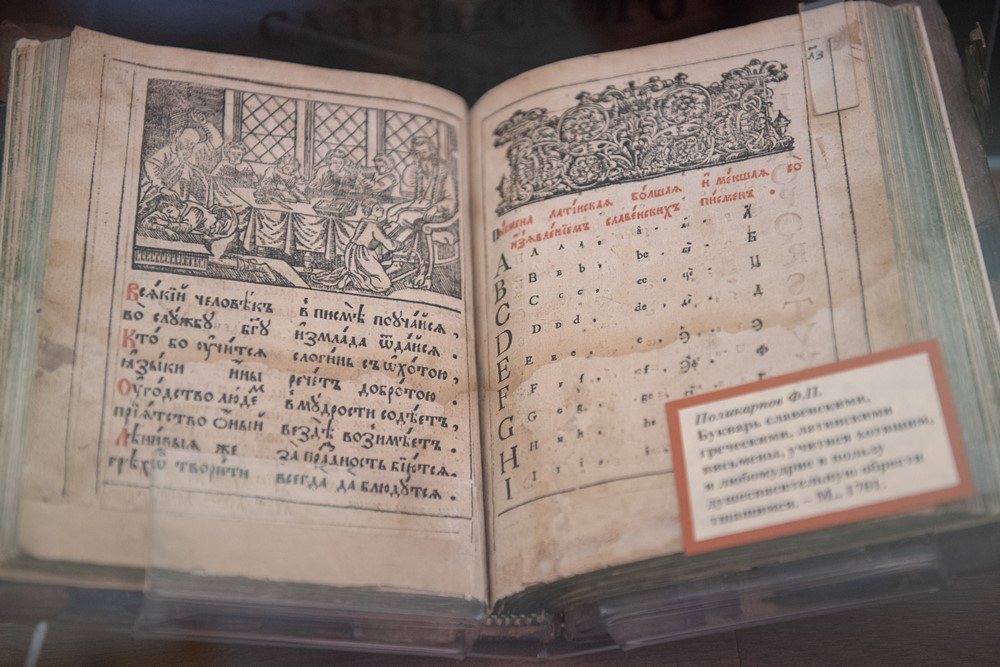 СЛАВЯНСКОГО
Всѧ́кїй человѣ́къ в писмѣ̀ поуча́йсѧ,
во слꙋ́жбꙋ бг҃ꙋ и҆змла́да ѿда́йсѧ.
Кто́ бо ᲂу҆чи́тсѧ съ ѡ҆хо́тою,
ꙗ҆зы́ки и҆́ны рече́тъ добро́тою.
Оу҆го́дство лю́дем в мꙋ́дрости содѣ́етъ,
прїѧ́тство вездѐ вози́мѣетъ.
Лѣни́выѧ же за пра́здность бїю́тсѧ.
грѣхѡ́въ твори́ти всегда̀ да блюдꙋ́тсѧ.
Пи́смена лати́нскаѧ бо́лшаѧ и҆ ме́ншаѧ во
и҆з̾ѧвле́нїемъ славе́нскихъ пи́сменъ.
A A a. а. А
B B b. be. Б
C C c. ce. Ц
D D d. de. Д
E E e. e. Э
F F f. ef. Ф
G G g.
H H h. ha
I I i.
Поликарпов Ф.П.
Букварь славенскими,
греческими, латинскими
письмены, учитися хотящим,
и любомудрие в пользу
душеспасительную обрести
тщащимся. – М., 1701.